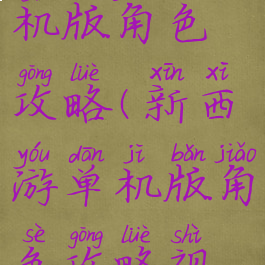 机版角色
gōng lüè xīn xī
攻略(新西
yóu dān jī bǎn jiǎo
游单机版角
sè gōng lüè shì
色攻略视